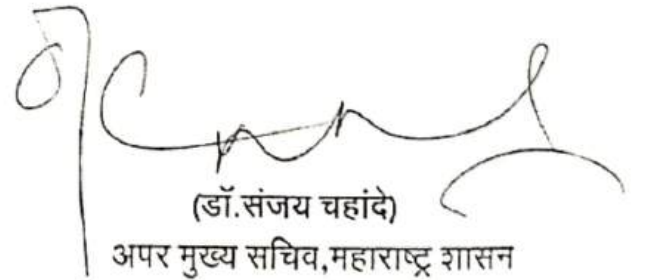 (डॉ.संजय चहांदे)
अपर मुख्य सचिव,महाराष्ट्र शासन